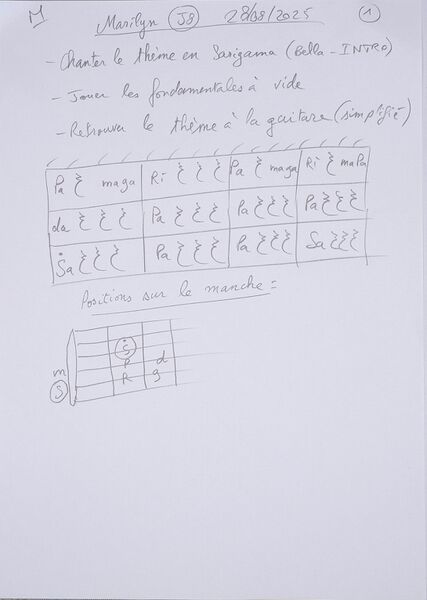 M Marilyn J8 28/08/2025 1
- Chanter le thème en Sarigama (Bella - INTRO)
- Jouer les fondamentales à vide
- Retrouver le thème à la guitare (simplifié)
Pa maga Ri Pa maga Ri maPa
da Pa Pa Pa
Ṡa Pa Pa Sa
Positions sur le manche =
Ṡ
m P d
S R g